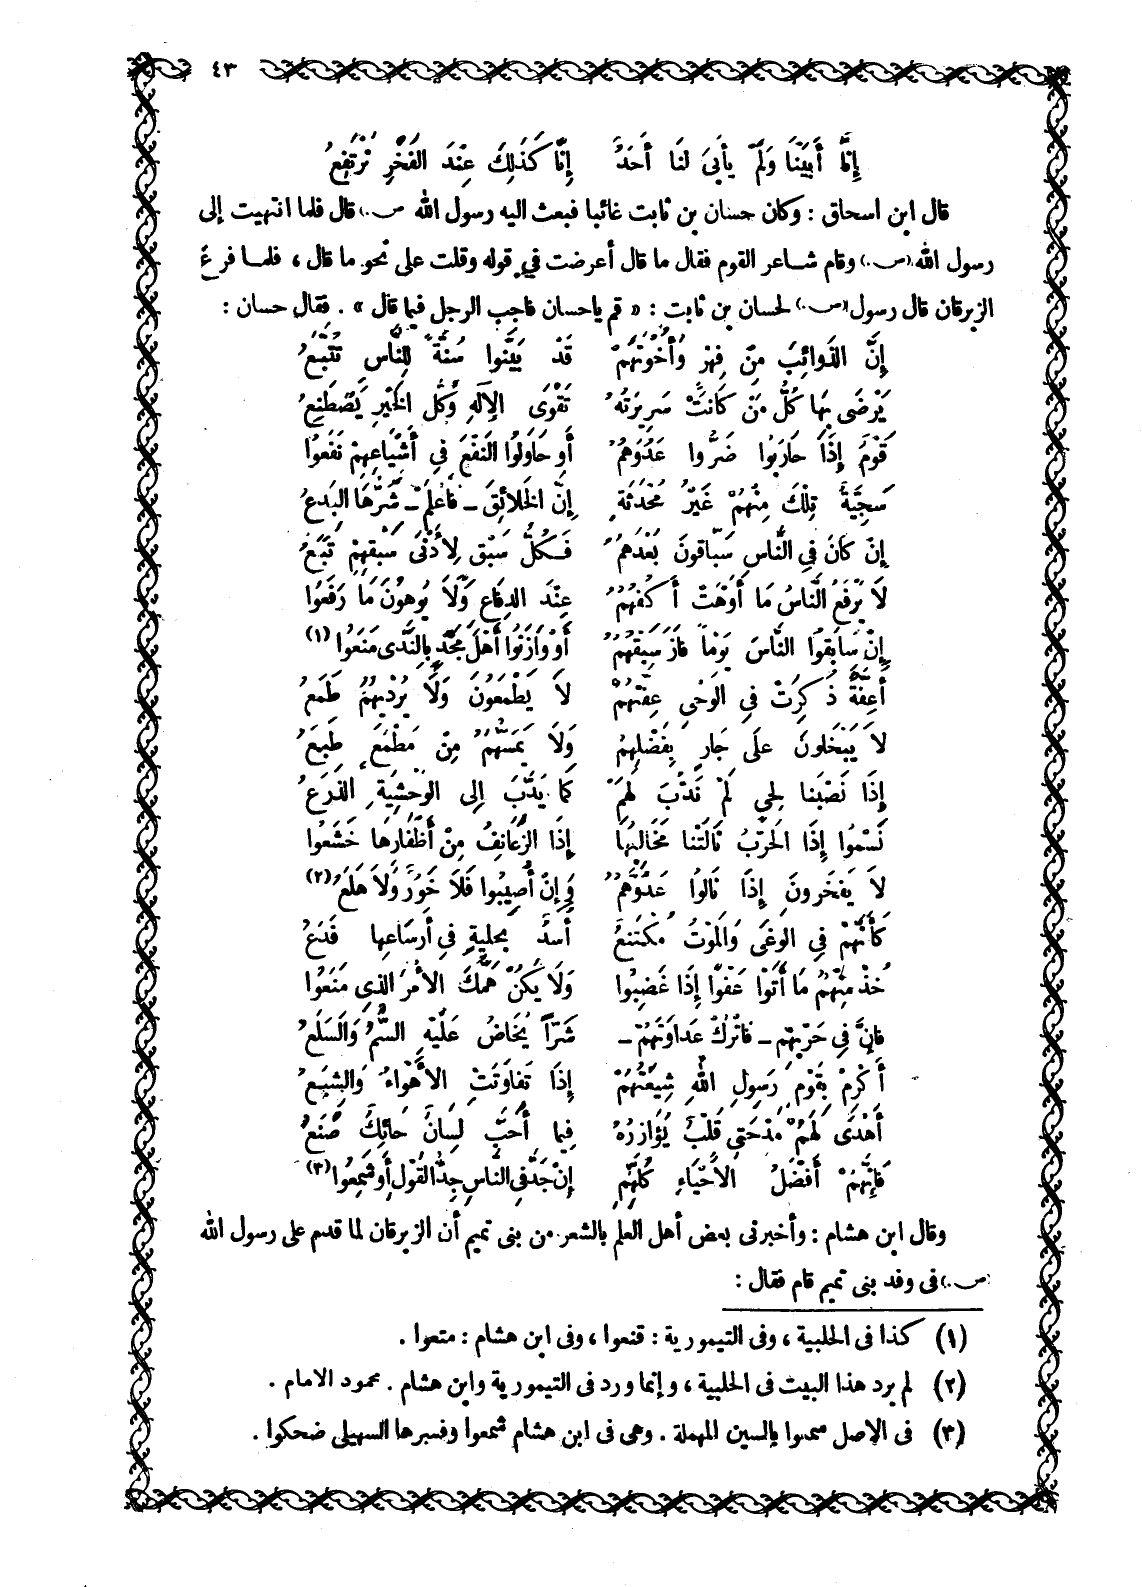 ٤٣
إِنَّا أَبَيْنَا وَلَمْ يأبىَ لنَا أَحَدٌ إِنَّا كَذَلِكَ عِنْدَ الفَخْرِ نَرْتَفِعُ
قال ابن اسحاق : وكان حسان بن ثابت غائبا فبعث اليه رسول الله (ص) قال فلما انتهيت إلى
رسول الله (ص) وقام شاعر القوم فقال ما قال أعرضت في قوله وقلت على نحو ما قال ، فلما فرغ
الزبرقان قال رسول (ص) لحسان بن ثابت : « قم ياحسان فاجب الرجل فيما قال » . فقال حسان :
إِنَّ الذَوائِبَ مِنْ فِهْرٍ وَأُخْوَتَهُمْ قَدْ بَيَّنُوا سُنَّةً لِلنَّاسِ تُتَّبَعُ
يَرْضَى بِهَا كُلُّ مَنْ كَانَتْ سَرِيرَتُهُ تَقْوَى الإِلَهِ وَكُلَّ الخَيْرِ يَصْطَنِعُ
قَوْمٌ إِذَا حَارَبُوا ضَرُّوا عَدُوَهُمُ أَو حَاوَلُوا النَفْعَ فِي أَشْيَاعِهِمْ نَفَعُوا
سَجِيَّةٌ تِلْكَ مِنْهُمْ غَيْرُ مُحْدَثَةٍ إِنَّ الخَلائِقَ - فَاعْلَمْ - شَرُّهَا البِدَعُ
إِنْ كَانَ فِي النَّاسِ سَبَّاقونَ بَعْدَهُمُ فَكُلُّ سَبْقٍ لِأَدْنَى سَبْقِهِمْ تَبَعُ
لَا يَرْفَعُ النَّاسُ مَا أَوْهَتْ أَكُفُهُمُ عِنْدَ الدِفَاعِ وَلَا يُوهُونَ مَا رَفَعُوا
إِنْ سَابَقُوا النَّاسَ يَوْماً فَازَ سَبِقُهُمُ أَوْ وَازَنُوا أَهْلَ مَجْدٍ بِالنَّدَى مَنَعُوا (١)
أَعِفَّةٌ ذُكِرَتْ فِي الوَحْيِ عِفَّتُهُمْ لاَ يَطْمَعُونَ وَلَا يُرْدِيهِمُ طَمَعُ
لاَ يَبْخَلونَ علَى جَارٍ بِفَضْلِهِمُ وَلَا يَمَسُّهُمُ مِنْ مَطْمَعٍ طَبَعُ
إِذَا نَصَبْنا لِحَيٍ لَمْ نَدُبَّ لَهُمْ كَما يَدُبُّ إِلى الوَحْشِيَةِ الذرَعُ
نَسْمُوا إِذَا الحَرْبُ نَالَتْنا مَخَالِبُهَا إِذَا الزَّعَانِفُ مِنْ أَظْفَارِها خَشَعُوا
لاَ يَفْخَرونَ إِذَا نَالُوا عَدُوَّهُمُ وَإِنْ أُصِيبُوا فَلَا خَوُرٌ وَلاَ هَلَعُ (٢)
كَأَنَّهُمْ فِي الوَغَى وَالمَوْتُ مُكْتَنِعٌ أُسْدٌ بِحليةٍ فِي أَرسَاغِها فَدَعُ
خُذْ مِنْهُمُ مَا أَتَوْا عَفْوًا إِذَا غَضِبُوا وَلَا يَكُنْ هَمُّكَ الأَمْرَ الذي مَنَعُوا
فَإِنَّ فِي حَرْبِهِمْ - فَاتْرُكْ عَداوَتَهُمْ - شَرَّاً يُخَاضُ عَلَيْهِ السُّمُّ وَالسَلَعُ
أَكْرِمْ بِقَوْمٍ رَسُولُ اللهِ شِيعَتُهُمْ إِذَا تَفاوَتَتِ الأَهْوَاءُ وَالشِيَعُ
أَهْدَى لَهُمْ مِدْحَتِي قَلْبٌ يُؤَازِرُهُ فِيما أُحِبُّ لِسَانٌ حَائِكٌ صَنَعُ
فَإِنَّهُمْ أَفْضَلُ الأَحْيَاءِ كُلِّهِمِ إِنْ جَدَّ فِي النَّاسِ جِدُّ القَوْلِ أَو شَمِعُوا (٣)
وقال ابن هشام : وأخبرنى بعض أهل العلم بالشعر من بنى تميم أن الزبرقان لما قدم على رسول الله
(ص) فى وفد بنى تميم قام فقال :
(١) كذا فى الحلبية ، وفى التيمورية : قنعوا ، وفى ابن هشام : متعوا .
(٢) لم يرد هذا البيت فى الحلبية ، وإنما ورد فى التيمورية وابن هشام . محمود الامام .
(٣) فى الاصل سمعوا بالسين المهملة . وهى فى ابن هشام شمعوا وفسرها السهيلى ضحكوا .